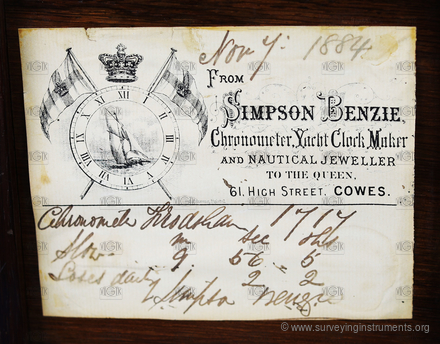 Nov 7. 1884
FROM
SIMPSON BENZIE,
Chronometer, Yacht Clock Maker
AND NAUTICAL JEWELLER
TO THE QUEEN,
61. HIGH STREET. COWES.
XII I II III IIII V VI VII VIII IX X XI
Chronometer 1717
m sec
Slow - 9 56 - 5
Loses daily 2 2
Simpson Benzie
© www.surveyinginstruments.org